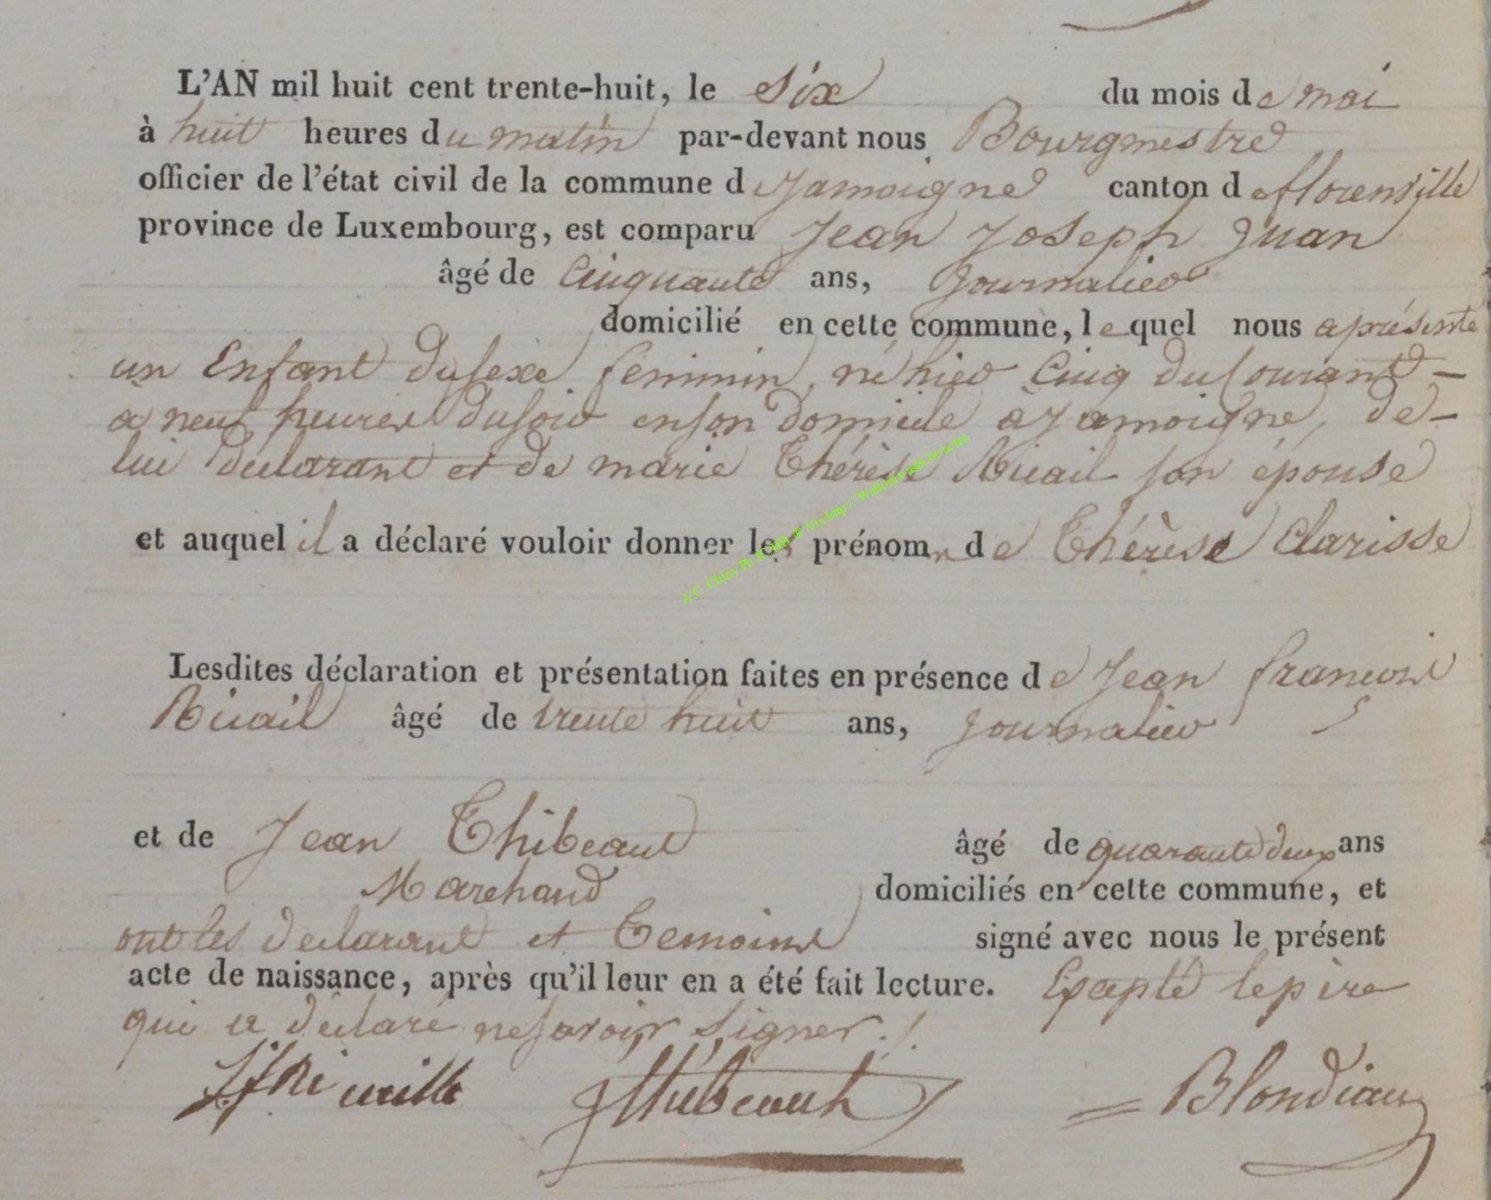 L'AN mil huit cent trente-huit, le six du mois de mai
à huit heures du matin par-devant nous Bourgmestre
officier de l'état civil de la commune de Jamoigne canton de florenville
province de Luxembourg, est comparu Jean Joseph Juan
âgé de Cinquante ans, Journalier
domicilié en cette commune, lequel nous a présenté
un Enfant du sexe féminin, né hier Cinq du Courant –
a neuf heures du soir en son domicile à Jamoigne, de –
lui déclarant et de marie Thérèse Ricail son épouse
et auquel il a déclaré vouloir donner les prénoms de Thérèse Clarisse
Lesdites déclaration et présentation faites en présence de Jean francois
Ricail âgé de trente huit ans, Journalier
et de Jean Thibeaut âgé de quarante deux ans
Marchand domiciliés en cette commune, et
ont les declarant et Temoins signé avec nous le présent
acte de naissance, après qu'il leur en a été fait lecture. Excepté le père
qui a déclaré ne savoir signer ./.
Thibeault Blondiau